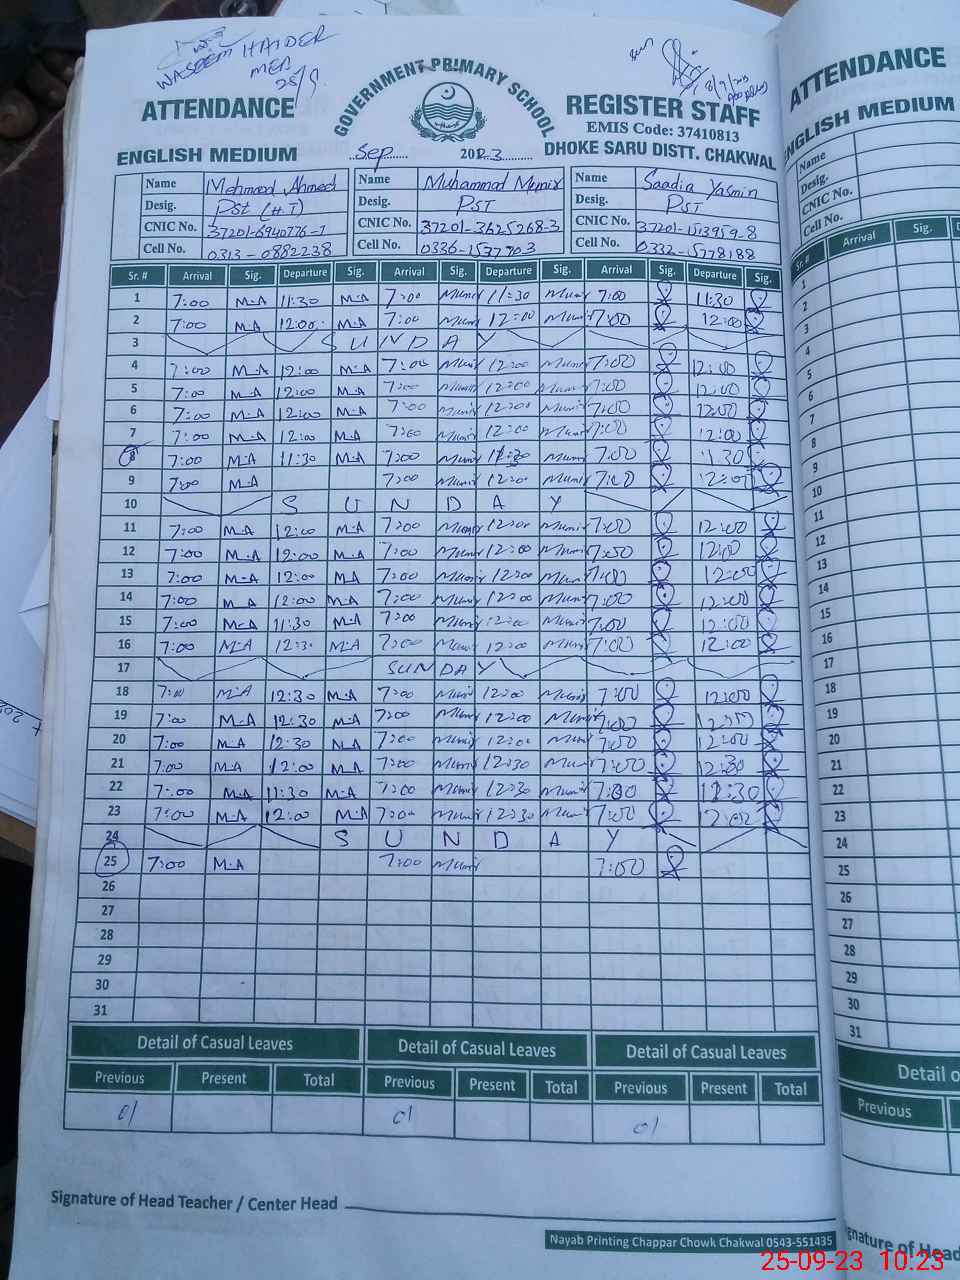 WASEEM HAIDER
MEA
25/9
GOVERNMENT PRIMARY SCHOOL
ATTENDANCE REGISTER STAFF
EMIS Code: 37410813
ENGLISH MEDIUM Sep 2023 DHOKE SARU DISTT. CHAKWAL
Name Mehmood Ahmed Name Muhammad Munir Name Saadia Yasmin
Desig. PST (H.T) Desig. PST Desig. PST
CNIC No. 37201-6940776-7 CNIC No. 37201-3625268-3 CNIC No. 37201-1513959-8
Cell No. 0313-0882238 Cell No. 0336-1537703 Cell No. 0332-15778188
Sr. # Arrival Sig. Departure Sig. Arrival Sig. Departure Sig. Arrival Sig. Departure Sig.
1 7:00 M-A 11:30 M-A 7:00 Munir 11:30 Munir 7:00 11:30
2 7:00 MA 12:00 MA 7:00 Munir 12:00 Munir 7:00 12:00
3 SUNDAY
4 7:00 M-A 12:00 MA 7:00 Munir 12:00 Munir 7:00 12:00
5 7:00 M-A 12:00 M-A 7:00 Munir 12:00 Munir 7:00 12:00
6 7:00 M-A 12:00 M-A 7:00 Munir 12:00 Munir 7:00 12:00
7 7:00 M-A 12:00 M-A 7:00 Munir 12:00 Munir 7:00 12:00
8 7:00 M-A 11:30 M-A 7:00 Munir 11:30 Munir 7:00 11:30
9 7:00 M-A 7:00 Munir 12:00 Munir 7:00 12:00
10 SUNDAY
11 7:00 M-A 12:00 M-A 7:00 Munir 12:00 Munir 7:00 12:00
12 7:00 M-A 12:00 M-A 7:00 Munir 12:00 Munir 7:00 12:00
13 7:00 M-A 12:00 MA 7:00 Munir 12:00 Munir 7:00 12:00
14 7:00 M-A 12:00 MA 7:00 Munir 12:00 Munir 7:00 12:00
15 7:00 M-A 11:30 M-A 7:00 Munir 12:00 Munir 7:00 12:00
16 7:00 M-A 12:30 MA 7:00 Munir 12:00 Munir 7:00 12:00
17 SUNDAY
18 7:00 M-A 12:30 M-A 7:00 Munir 12:00 Munir 7:00 12:00
19 7:00 M-A 12:30 M-A 7:00 Munir 12:00 Munir 7:00 12:00
20 7:00 M-A 12:30 M-A 7:00 Munir 12:00 Munir 7:00 12:00
21 7:00 M-A 12:00 MA 7:00 Munir 12:30 Munir 7:00 12:30
22 7:00 M-A 11:30 M-A 7:00 Munir 12:30 Munir 7:00 12:30
23 7:00 M-A 12:00 M-A 7:00 Munir 12:30 Munir 7:00 12:00
24 SUNDAY
25 7:00 M-A 7:00 Munir 7:00
26
27
28
29
30
31
Detail of Casual Leaves Detail of Casual Leaves Detail of Casual Leaves
Previous Present Total Previous Present Total Previous Present Total
01 01 01
Signature of Head Teacher / Center Head
Nayab Printing Chappar Chowk Chakwal 0543-551435
ATTENDANCE
ENGLISH MEDIUM
Name
Desig.
CNIC No.
Cell No.
Sr. # Arrival Sig.
1
2
3
4
5
6
7
8
9
10
11
12
13
14
15
16
17
18
19
20
21
22
23
24
25
26
27
28
29
30
31
Detail o
Previous
ignature of Head
25-09-23 10:23